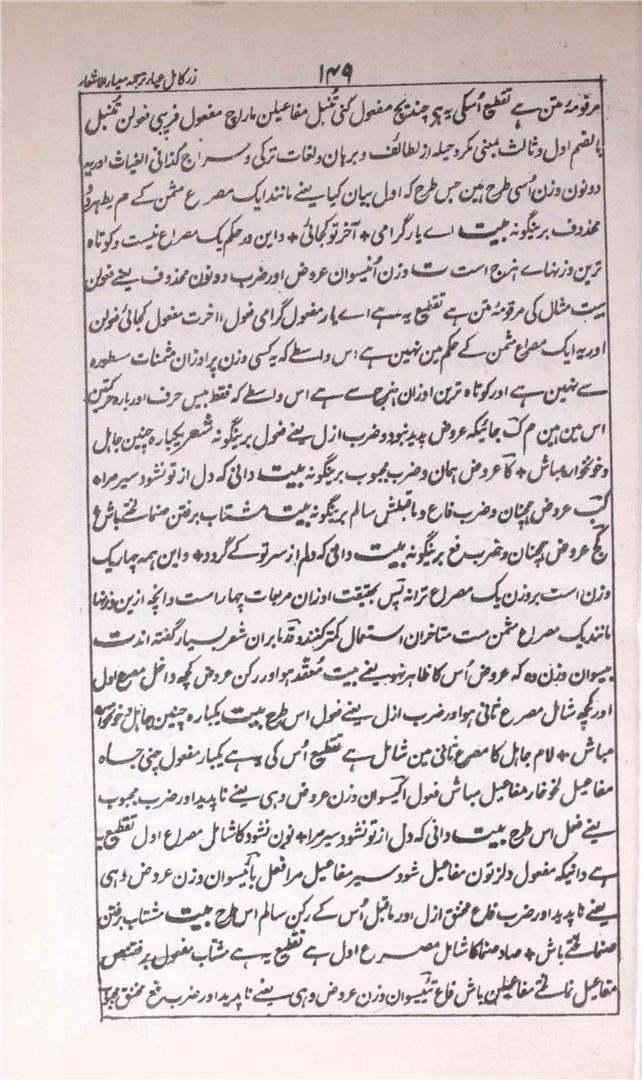 ۱۴۹
زر کامل عیار ترجمہ معیار الاشعار
مرقومۂ متن ہے تقطیع اُسکی یہ ہو چند تیج مفعول کنی تُنبل مفاعیلن مار اچ مفعول فریبی فعولن تُنبل
بالضم اول و ثالث بمعنی مکر و حیلہ از لطائف و برہان و لغات ترکی و سراج کذا فی الغیاث اور یہ
دونون وزن اُسی طرح ہین جس طرح کہ اول بیان کیا یعنے مانند ایک مصرع مثمن کے م یط ہر دو
محذوف برینگونہ بیت اے یار گرامی + آخر تو کجائی + و این در حکم یک مصراع نیست و کوتاہ
ترین وزنہاے ہزج است ت وزن اُنیسوان عروض اور ضرب دونون محذوف یعنے فعولن
بیت مثال کی مرقومۂ متن ہے تقطیع یہ ہے اے یار مفعول گرامی فعول ااخرت مفعول کجائی فعولن
اور یہ ایک مصراع مثمن کے حکم مین نہین ہے اس واسطے کہ یہ کسی وزن پر اوزان مثمنات مسطورہ
سے نہین ہے اور کوتاہ ترین اوزان ہزج سے ہے اس واسطے کہ فقط بیس حرف اور بارہ حرکتین
اس مین ہین م ک جائیکہ عروض پدید نبود و ضرب ازل یعنے فعول برینگونہ شعر یکبارہ چنین جاہل
و خونخوارہ مباش + کا عروض ہمان و ضرب مجبوب برینگونہ بیت دانی کہ دل از تو نشود سیر مرا +
کب عروض ہمچنان و ضرب فاع و ماقبلش سالم برینگونہ بیت مشتاب برفتن صنما لختے باش +
کج عروض ہمچنان و ضرب فع برینگونہ بیت دانی کہ دلم از سر تو کے گردد + و این ہمہ چہار یک
وزن است بروزن یک مصراع ترانہ پس بحقیقت اوزان مربعات چہار است و آنچہ ازین وزنہا
مانند یک مصراع مثمن ست متاخران استعمال کمتر کنند و قدما بران شعر بسیار گفتہ اند ت
بیسوان وزن وہ کہ عروض اُس کا ظاہر نہو یعنے بیت مُعقد ہو اور رکن عروض کچھ داخل مصرع اول
اور کچھ شامل مصرع ثانی ہو اور ضرب ازل یعنے فعول اس طرح بیت یکبارہ چنین جاہل و خونخوارہ
مباش + لام جاہل کا مصرع ثانی مین شامل ہے تقطیع اُس کی یہ ہے یکبار مفعول چنی جاہ
مفاعیل لخوخار مفاعیل مباش فعول اکیسوان وزن عروض وہی یعنے ناپدید اور ضرب مجبوب
یعنے فعل اس طرح بیت دانی کہ دل از تو نشود سیر مرا + نون نشود کا شامل مصراع اول تقطیع یہ
ہے دانیکہ مفعول دلزتون مفاعیل شود سیر مفاعیل مرا فعل بائیسوان وزن عروض وہی
یعنے ناپدید اور ضرب فاع مخنق ازل اور ماقبل اُس کے رکن سالم اس طرح بیت مشتاب برفتن
صنما لختے باش + صاد صنما کا شامل مصرع اول ہے تقطیع یہ ہے مشتاب مفعول برفتنص
مفاعیل نما لختے مفاعیلن باش فاع تئیسوان وزن عروض وہی یعنے ناپدید اور ضرب فع مخنق مجبوب